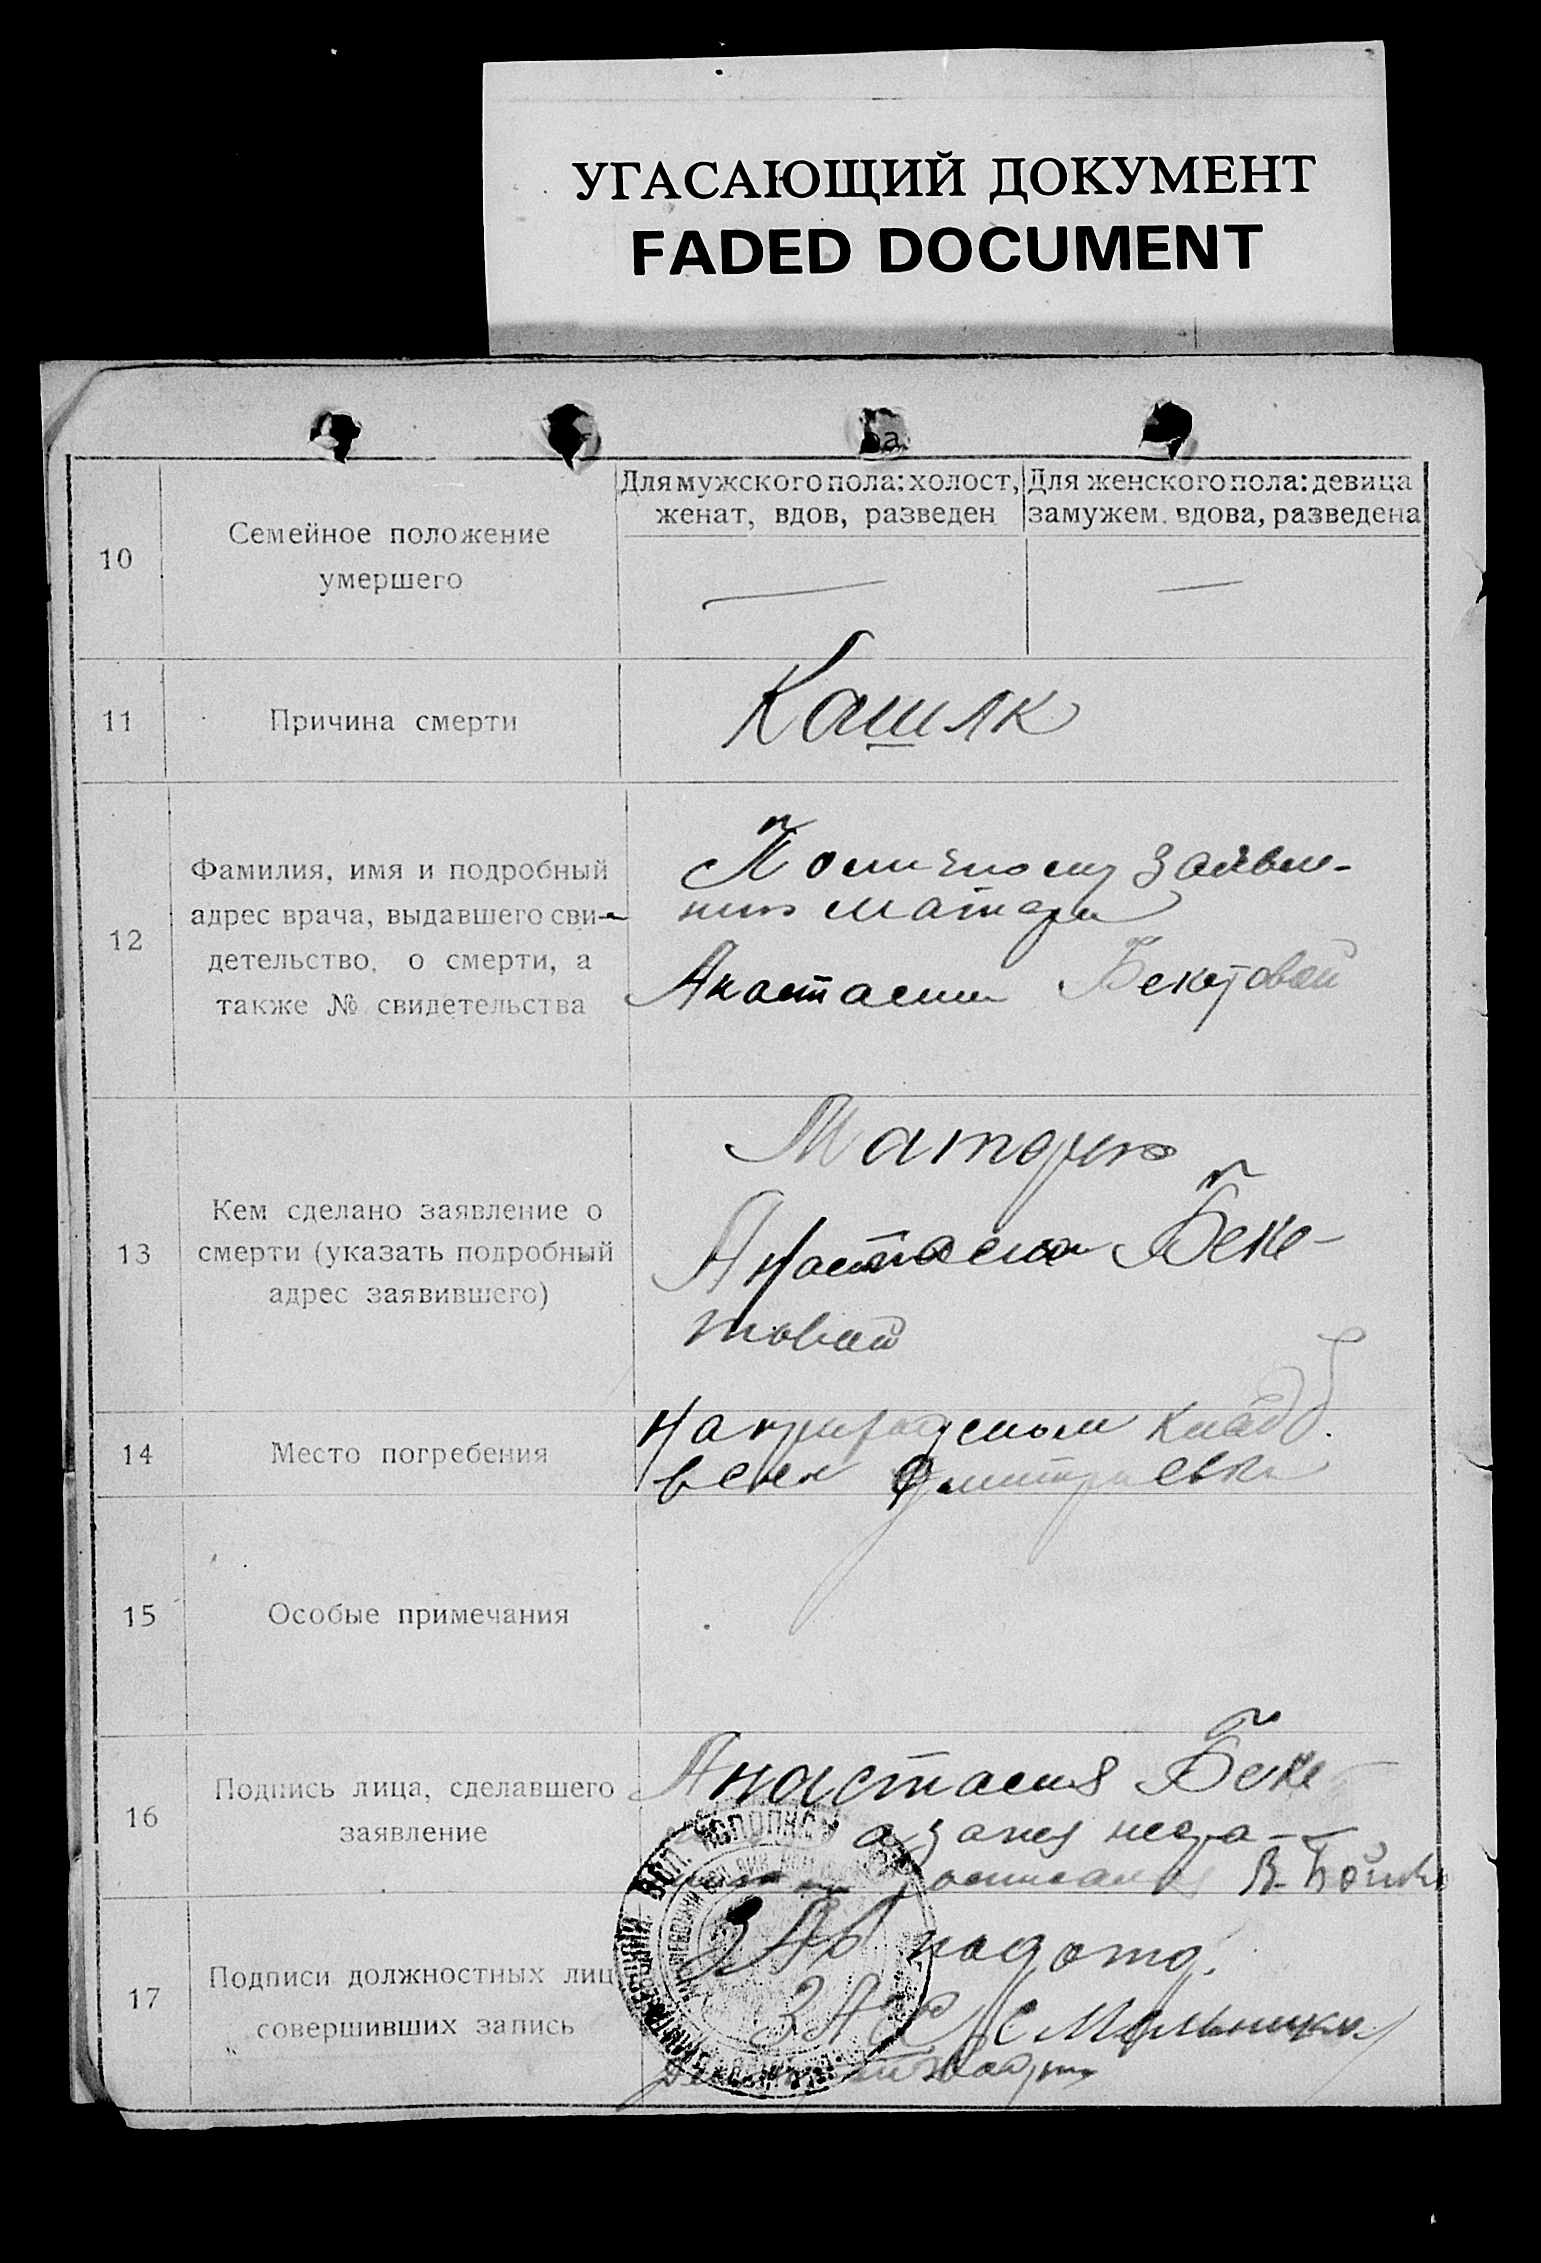 УГАСАЮЩИЙ ДОКУМЕНТ
FADED DOCUMENT
10
Семейное положение
умершего
Для мужского пола: холост,
женат, вдов, разведен
Для женского пола: девица
замужем. вдова, разведена
—
—
11
Причина смерти
Кашлк
12
Фамилия, имя и подробный
адрес врача, выдавшего сви-
детельство, о смерти, а
также № свидетельства
По личному заявле-
нию матери
Анастасии Бекетовой
13
Кем сделано заявление о
смерти (указать подробный
адрес заявившего)
Матерью
Анастасией Беке-
товой
14
Место погребения
На кладб.
в селе Дмитриевке
15
Особые примечания
16
Подпись лица, сделавшего
заявление
Анастасия Беке-
а за нея негра-
В. Бойко
17
Подписи должностных лиц
совершивших запись
Зав подотд.
ЗАГС